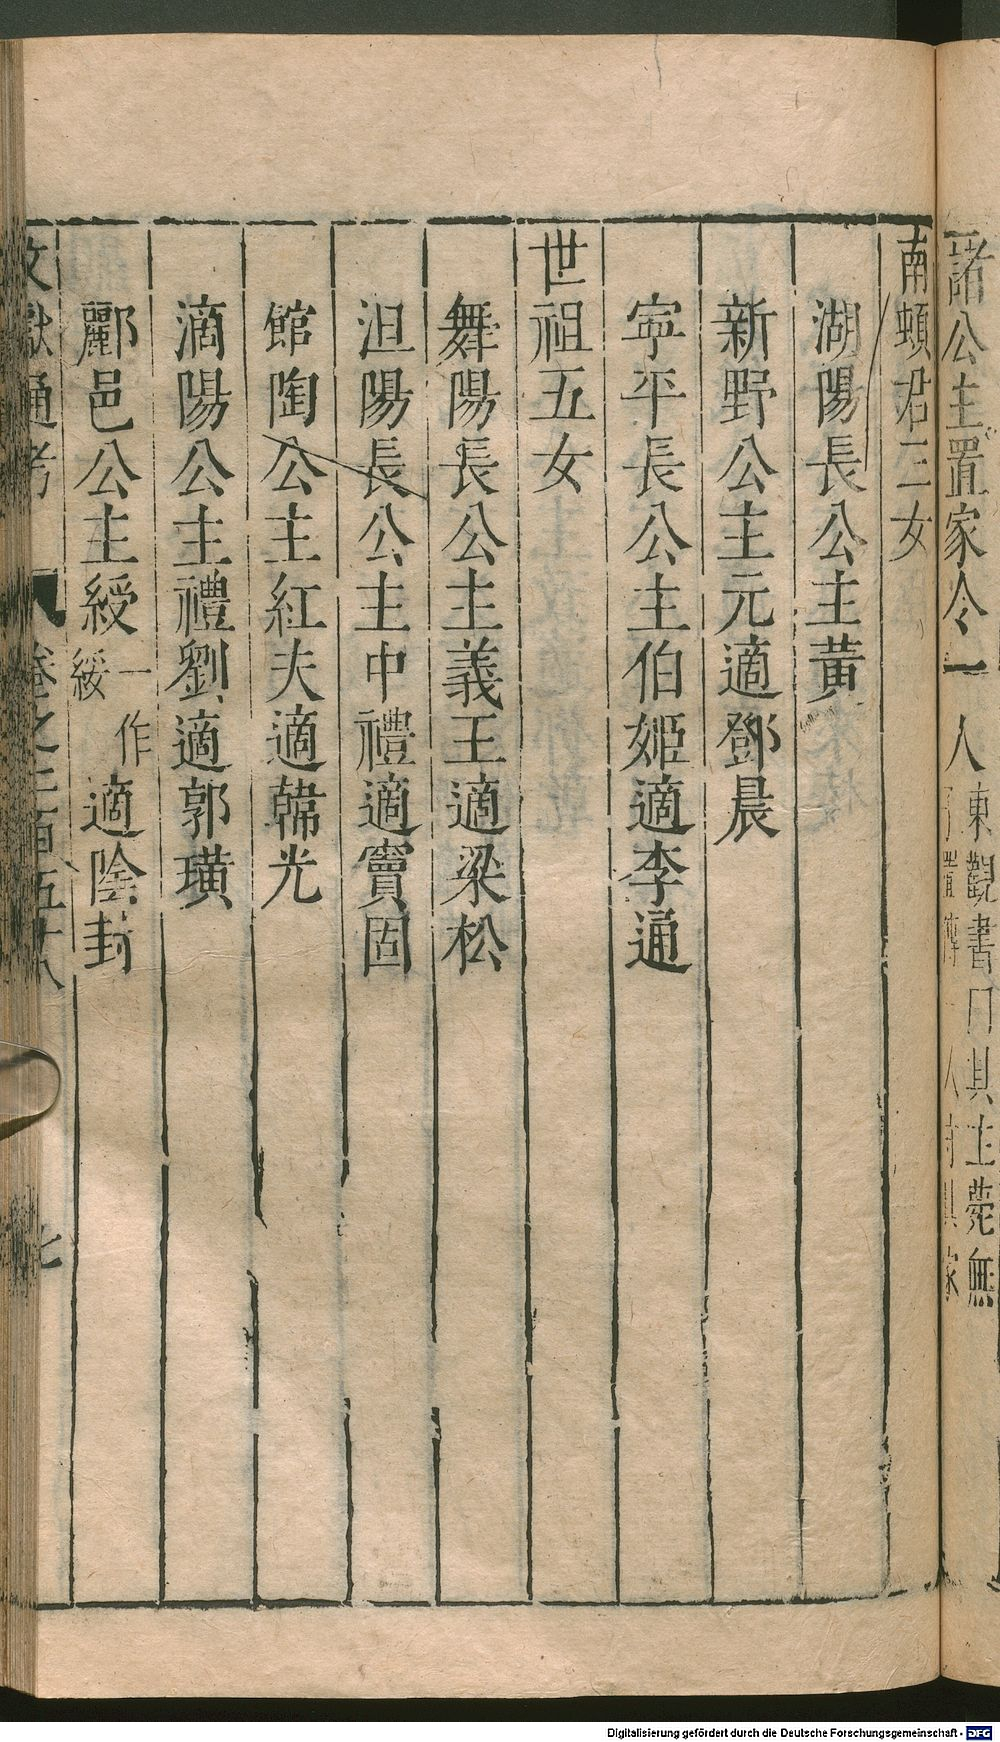 諸公主置家令一人東觀書曰其主薨無
南頓君三女
湖陽長公主黃
新野公主元適鄧晨
寧平長公主伯姬適李通
世祖五女
舞陽長公主義王適梁松
沮陽長公主中禮適竇固
館陶公主紅夫適韓光
滴陽公主禮劉適郭璜
酈邑公主綬一作綏適陰封
文獻通考 卷之二百五十八 七
Digitalisierung gefördert durch die Deutsche Forschungsgemeinschaft - DFG